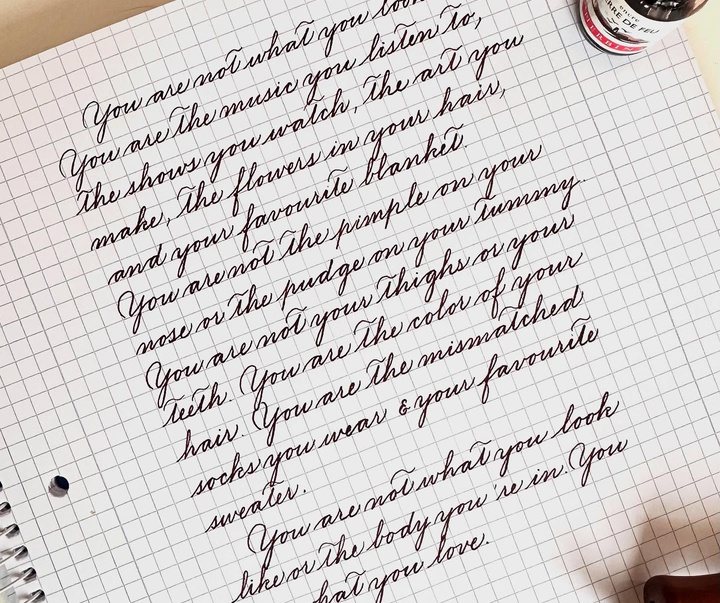 You are not what you look
You are the music you listen to,
the shows you watch, the art you
make, the flowers in your hair,
and your favourite blanket.
You are not the pimple on your
nose or the pudge on your tummy.
You are not your thighs or your
teeth. You are the color of your
hair. You are the mismatched
socks you wear & your favourite
sweater.
You are not what you look
like or the body you're in. You
what you love.
encre
ERRE DE FEU
HERBIN